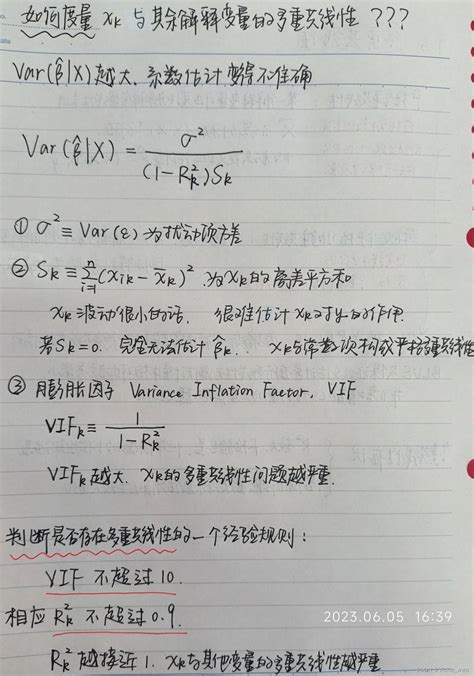 如何度量 xₖ 与其余解释变量的多重共线性 ???
Var(β̂|X) 越大. 系数估计变得不准确
Var(β̂|X) = σ² / (1-Rₖ²)Sₖ
① σ² ≡ Var(ε) 为扰动项方差
② Sₖ ≡ Σⁿᵢ₌₁(xᵢₖ - x̄ₖ)² 为xₖ的离差平方和
xₖ波动很小的话. 很难估计 xₖ对y的作用.
若Sₖ=0. 完全无法估计 β̂ₖ.. xₖ与常数项构成严格多重共线性
③ 膨胀因子 Variance Inflation Factor, VIF
VIFₖ ≡ 1 / 1-Rₖ²
VIFₖ越大. xₖ的多重共线性问题越严重.
判断是否存在多重共线性的一个经验规则:
VIF 不超过 10.
相应 Rₖ² 不超过 0.9.
2023.06.05 16:39
Rₖ² 越接近 1. xₖ与其他变量的多重共线性越严重